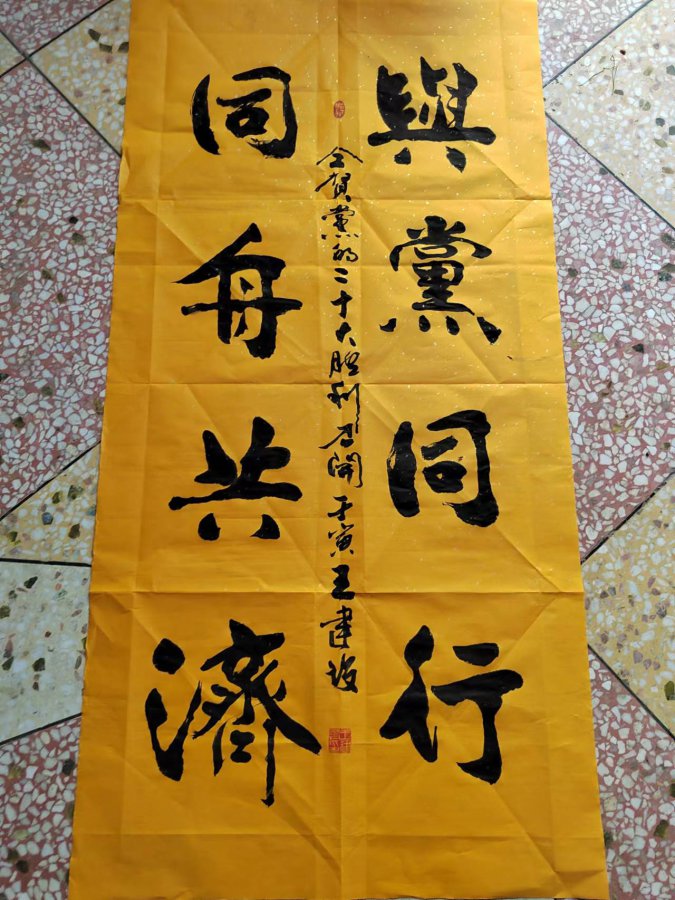 與黨同行
同舟共濟
仝賀黨的二十大胜利召開壬寅王建